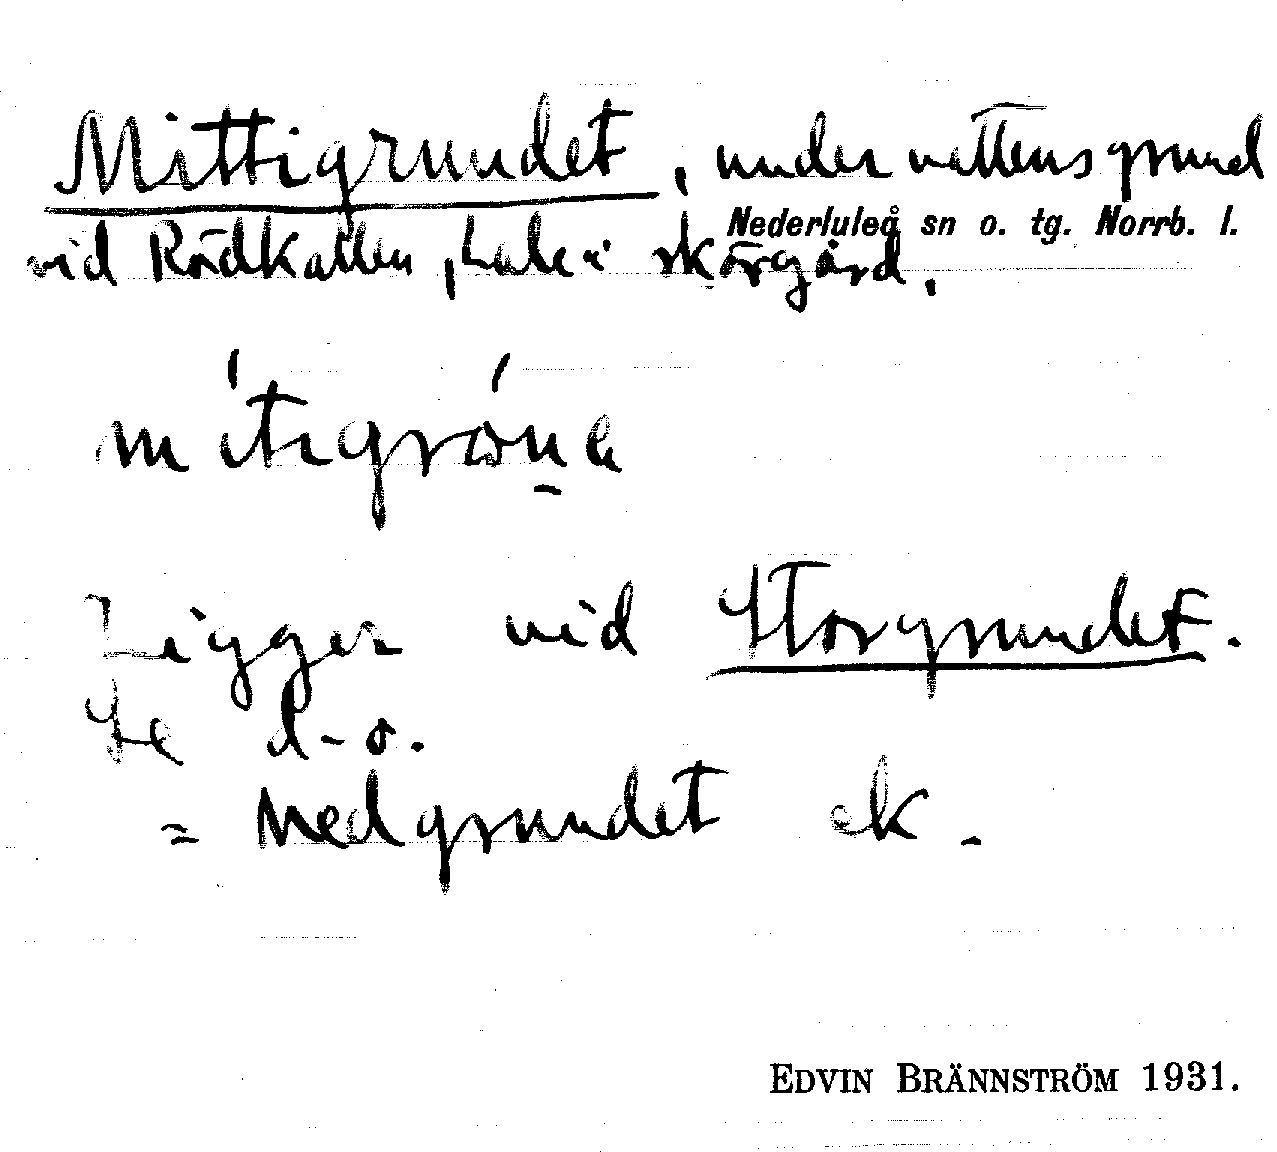 Mittigrundet, undervattensgrund
Nederluleå sn o. tg. Norrb. l.
vid Rödkallen, Lule skärgård.
Ligger vid Storgrundet.
Se d-o.
= Nedgrundet ek.
EDVIN BRÄNNSTRÖM 1931.